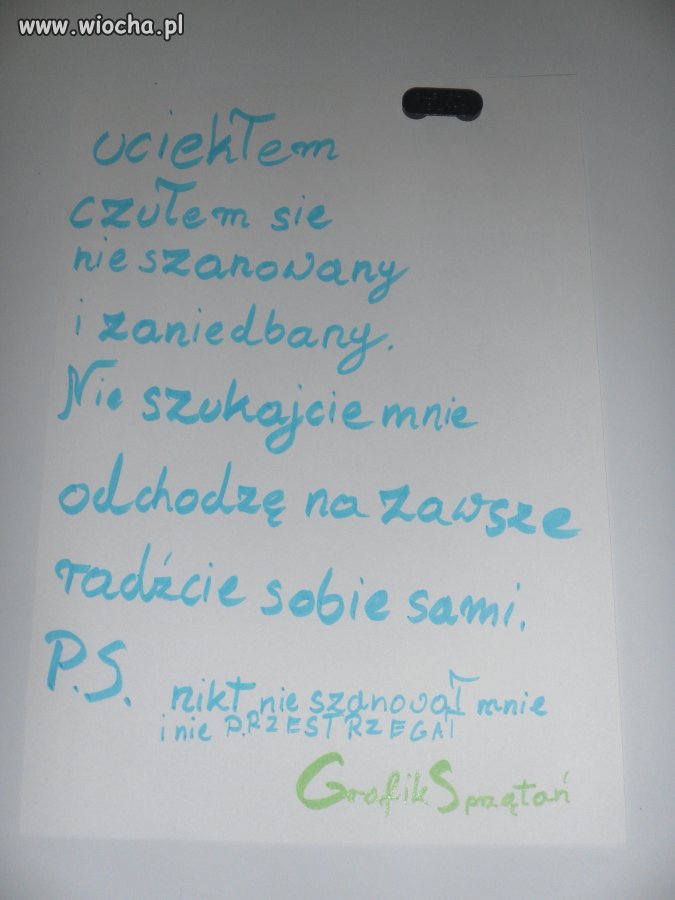 www.wiocha.pl
uciekłem
czułem sie
nie szanowany
i zaniedbany.
Nie szukajcie mnie
odchodzę na zawsze
radźcie sobie sami.
P.S. nikt nie szanował mnie
i nie PRZESTRZEGAł
Grafik Sprzątań